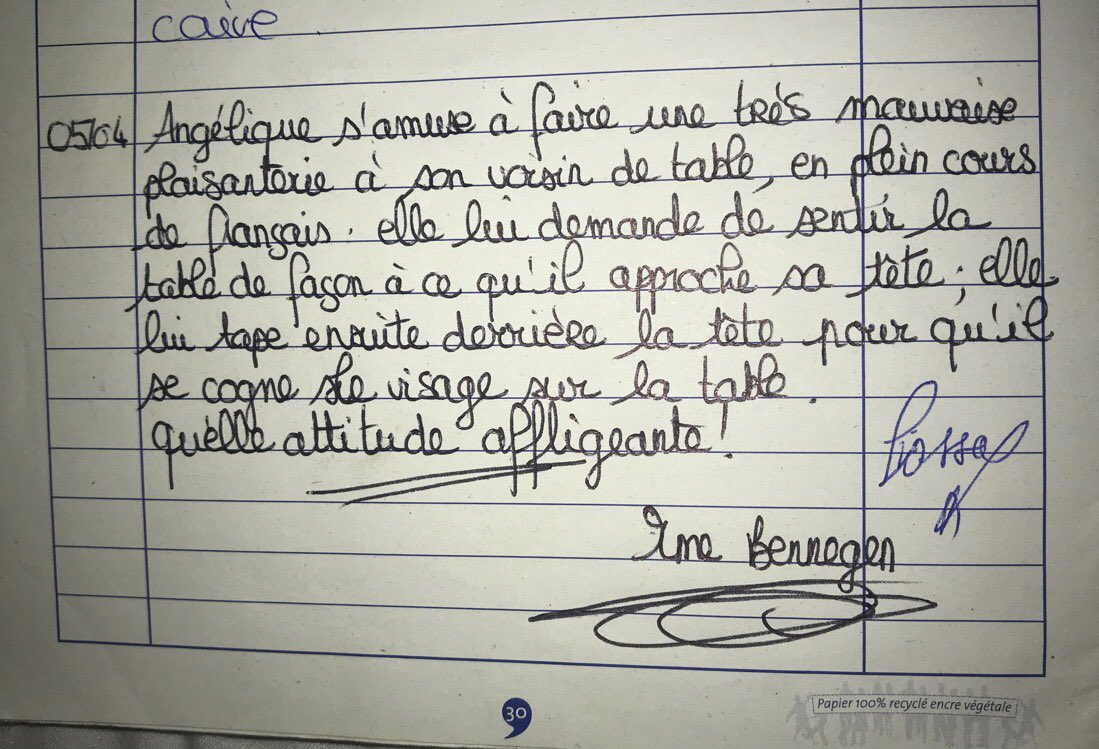 caire
05/04 Angélique s'amuse à faire une très mauvaise
plaisanterie à son voisin de table, en plein cours
de français. elle lui demande de sentir la
table de façon à ce qu'il approche sa tête; elle
lui tape ensuite derrière la tête pour qu'il
se cogne le visage sur la table.
quelle attitude affligeante!
Mme Bennegen
30
Papier 100% recyclé encre végétale